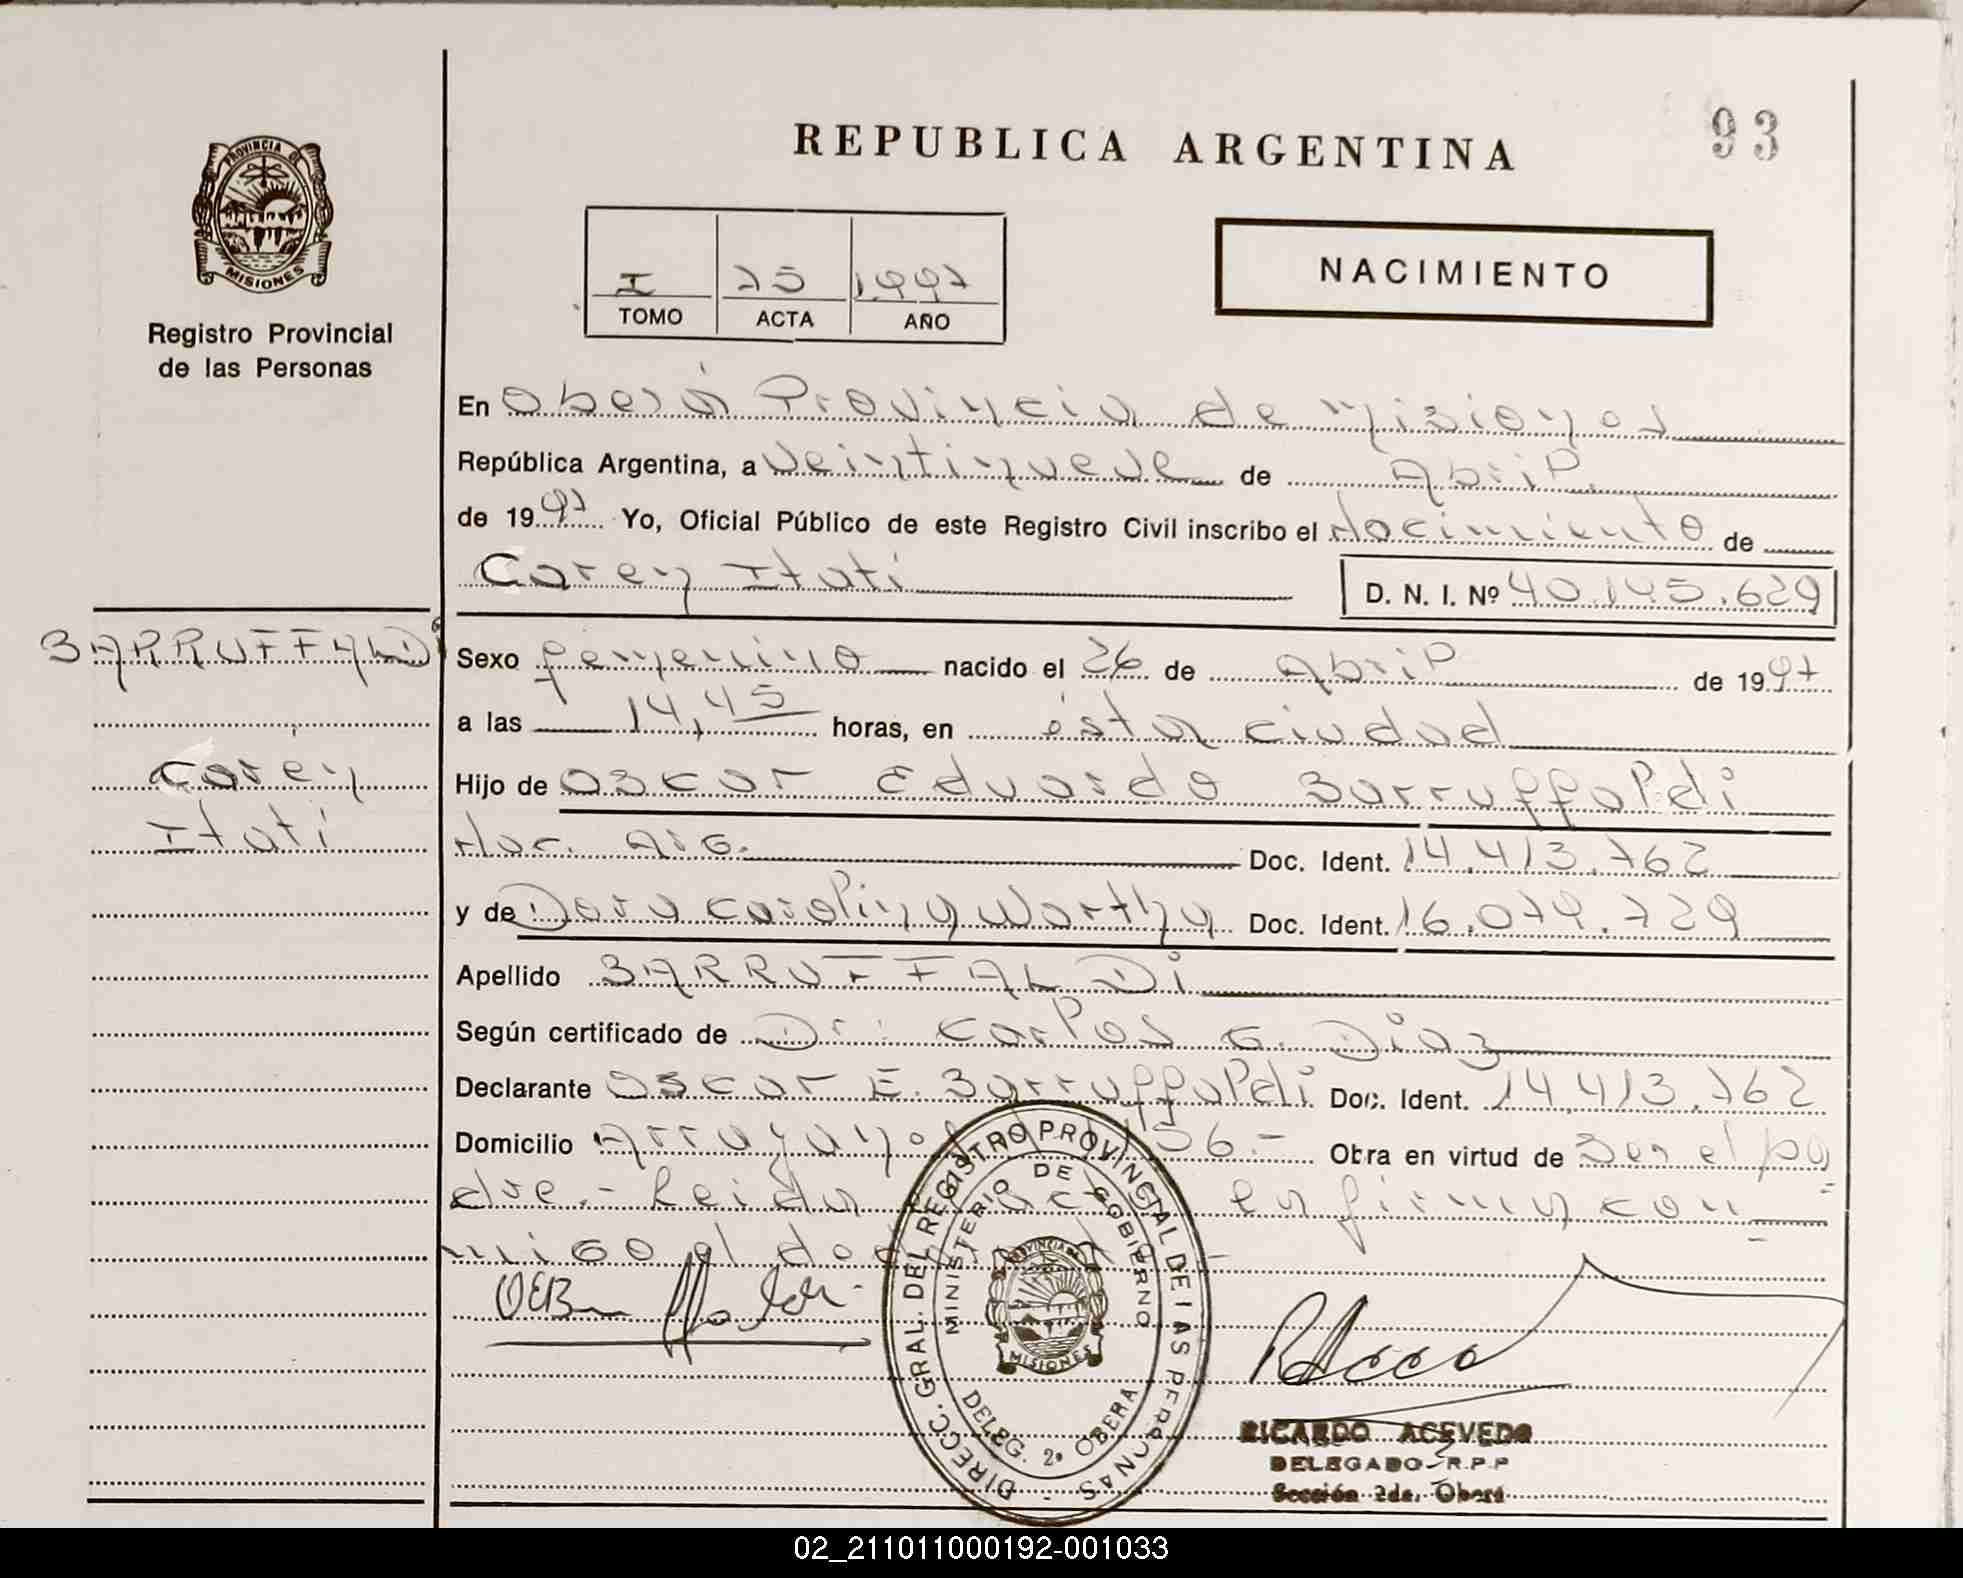 93
REPUBLICA ARGENTINA
PROVINCIA DE
MISIONES
Registro Provincial
de las Personas
I 75 1.997
TOMO ACTA AÑO
NACIMIENTO
En Oberá Provincia de Misiones
República Argentina, a veintinueve de Abril
de 1997 Yo, Oficial Público de este Registro Civil inscribo el Nacimiento de
Coren Itatí D. N. I. Nº 40.145.629
BARRUFFALDi
Sexo femenino nacido el 26 de Abril de 1997
a las 14,45 horas, en ésta ciudad
Coren
Itatí
Hijo de Oscar Eduardo Barruffaldi
Nac. Arg. Doc. Ident. 14.413.762
y de Dora Carolina Warthy Doc. Ident. 16.074.729
Apellido BARRUFFALDi
Según certificado de Dr. Carlos G. Diaz
Declarante Oscar E. Barruffaldi Doc. Ident. 14.413.762
Domicilio 56.- Obra en virtud de Ser el pa
dre.- Leida en firma con
migo el
DIRECC. GRAL. DEL REGISTRO PROVINCIAL DE LAS PERSONAS
MINISTERIO DE GOBIERNO
PROVINCIA DE
MISIONES
DELEG. 2ª OBERA
RICARDO ACEVEDO
DELEGADO-R.P.P
Sección 2da. Oberá
02_211011000192-001033